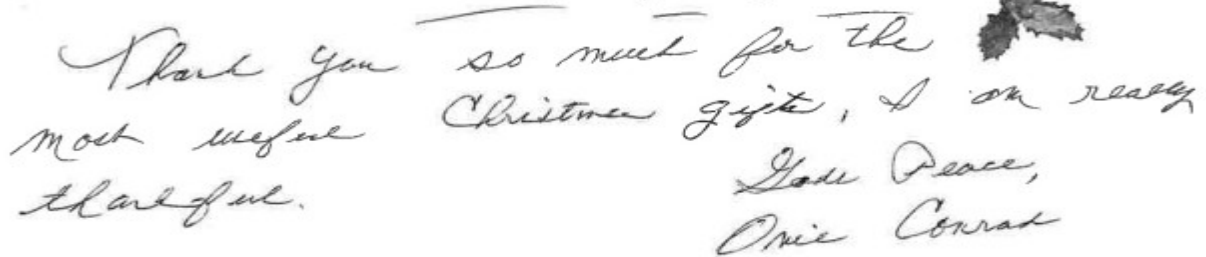 Thank you so much for the
most useful Christmas gifts, I am really
thankful.
Gods Peace,
Conrad